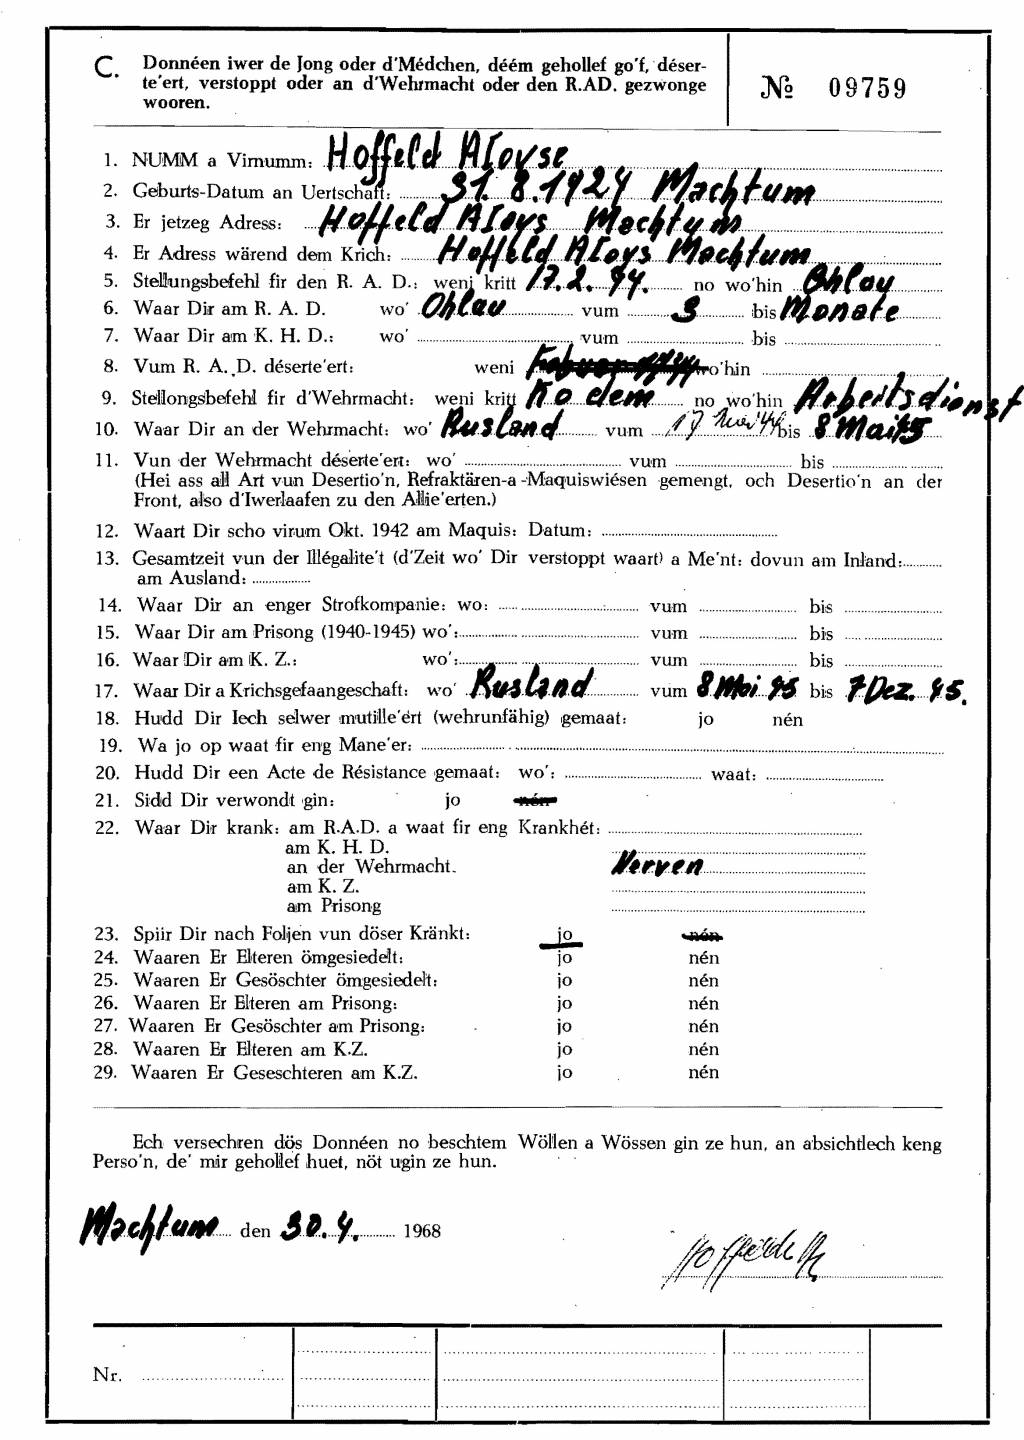 C. Donnéen iwer de Jong oder d'Médchen, déém gehollef go'f, déser-
te'ert, verstoppt oder an d'Wehrmacht oder den R.AD. gezwonge
wooren.
№ 09759
1. NUMM a Virnumm: Hoffeld Aloyse
2. Geburts-Datum an Uertschaft: 31.8.1924 Machtum
3. Er jetzeg Adress: Hoffeld Aloys Machtum
4. Er Adress wärend dem Krich: Hoffeld Aloys Machtum
5. Stellungsbefehl fir den R. A. D.: weni kritt 17.2.44. no wo'hin Ohlau
6. Waar Dir am R. A. D. wo' Ohlau vum 3 bis Monate
7. Waar Dir am K. H. D.: wo' vum bis
8. Vum R. A. D. déserte'ert: weni wo'hin
9. Stellongsbefehl fir d'Wehrmacht: weni kritt no dem no wo'hin Arbeitsdienst
10. Waar Dir an der Wehrmacht: wo' Rusland vum 17 Mai 44 bis 8 Mai 45
11. Vun der Wehrmacht déserte'ert: wo' vum bis
(Hei ass all Art vun Desertio'n, Refraktären-a-Maquiswiésen gemengt, och Desertio'n an der
Front, also d'Iwerlaafen zu den Allie'erten.)
12. Waart Dir scho virum Okt. 1942 am Maquis: Datum:
13. Gesamtzeit vun der Illégalite't (d'Zeit wo' Dir verstoppt waart) a Me'nt: dovun am Inland:
am Ausland:
14. Waar Dir an enger Strofkompanie: wo: vum bis
15. Waar Dir am Prisong (1940-1945) wo': vum bis
16. Waar Dir am K. Z.: wo': vum bis
17. Waar Dir a Krichsgefaangeschaft: wo' Rusland vum 8 Mai 45 bis 7 Dez. 45.
18. Hudd Dir Iech selwer mutille'ért (wehrunfähig) gemaat: jo nén
19. Wa jo op waat fir eng Mane'er:
20. Hudd Dir een Acte de Résistance gemaat: wo': waat:
21. Sidd Dir verwondt gin: jo nén
22. Waar Dir krank: am R.A.D. a waat fir eng Krankhét:
am K. H. D.
an der Wehrmacht. Nerven
am K. Z.
am Prisong
23. Spiir Dir nach Foljen vun döser Kränkt: jo nén
24. Waaren Er Elteren ömgesiedelt: jo nén
25. Waaren Er Gesöschter ömgesiedelt: jo nén
26. Waaren Er Elteren am Prisong: jo nén
27. Waaren Er Gesöschter am Prisong: jo nén
28. Waaren Er Elteren am K.Z. jo nén
29. Waaren Er Geseschteren am K.Z. jo nén
Ech versechren dös Donnéen no beschtem Wöllen a Wössen gin ze hun, an absichtlech keng
Perso'n, de' mir gehollef huet, nöt ugin ze hun.
Machtum den 30.4. 1968
Nr.